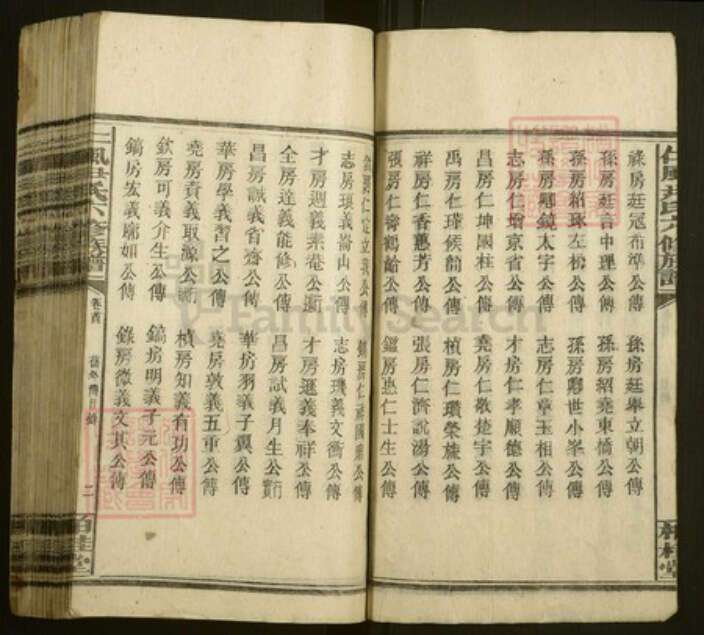 祿房廷冠布準公傳 孫房廷舉立朝公傳
孫房廷言中理公傳 孫房紹堯東橋公傳
孫房紹琢左松公傳 孫房夢世小峯公傳
孫房夢鏡太宇公傳 志房仁章玉相公傳
志房仁增京省公傳 才房仁孝順德公傳
昌房仁坤國柱公傳 堯房仁敬楚宇公傳
禹房仁璀候韶公傳 楨房仁瓚榮旌公傳
祥房仁香蕙芳公傳 張房仁濟說湯公傳
張房仁壽鶴齡公傳 鑑房惠仁士生公傳
志房瑱義崙山公傳 志房璣義文衡公傳
才房迥義素菴公衢 才房遜義奉祥公傳
全房達義能修公傳 昌房試義月生公實行
昌房誠義省齋公傳 華房羽義子翼公傳
華房學義習之公傳 堯房敦義五重公傳
堯房貢義取源公 楨房知義有功公傳
欽房可義介生公傳 鎬房明義子元公傳
鎬房宏義廓如公傳 錄房微義文其公傳
鳳尹氏六修族譜 卷首 二
尹氏六修族譜
桂堂
FamilySearch